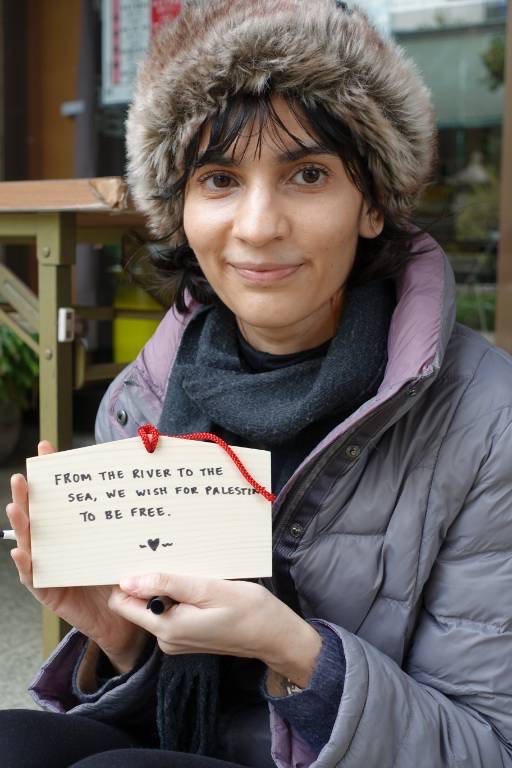 FROM THE RIVER TO THE
SEA, WE WISH FOR PALESTIN
TO BE FREE.